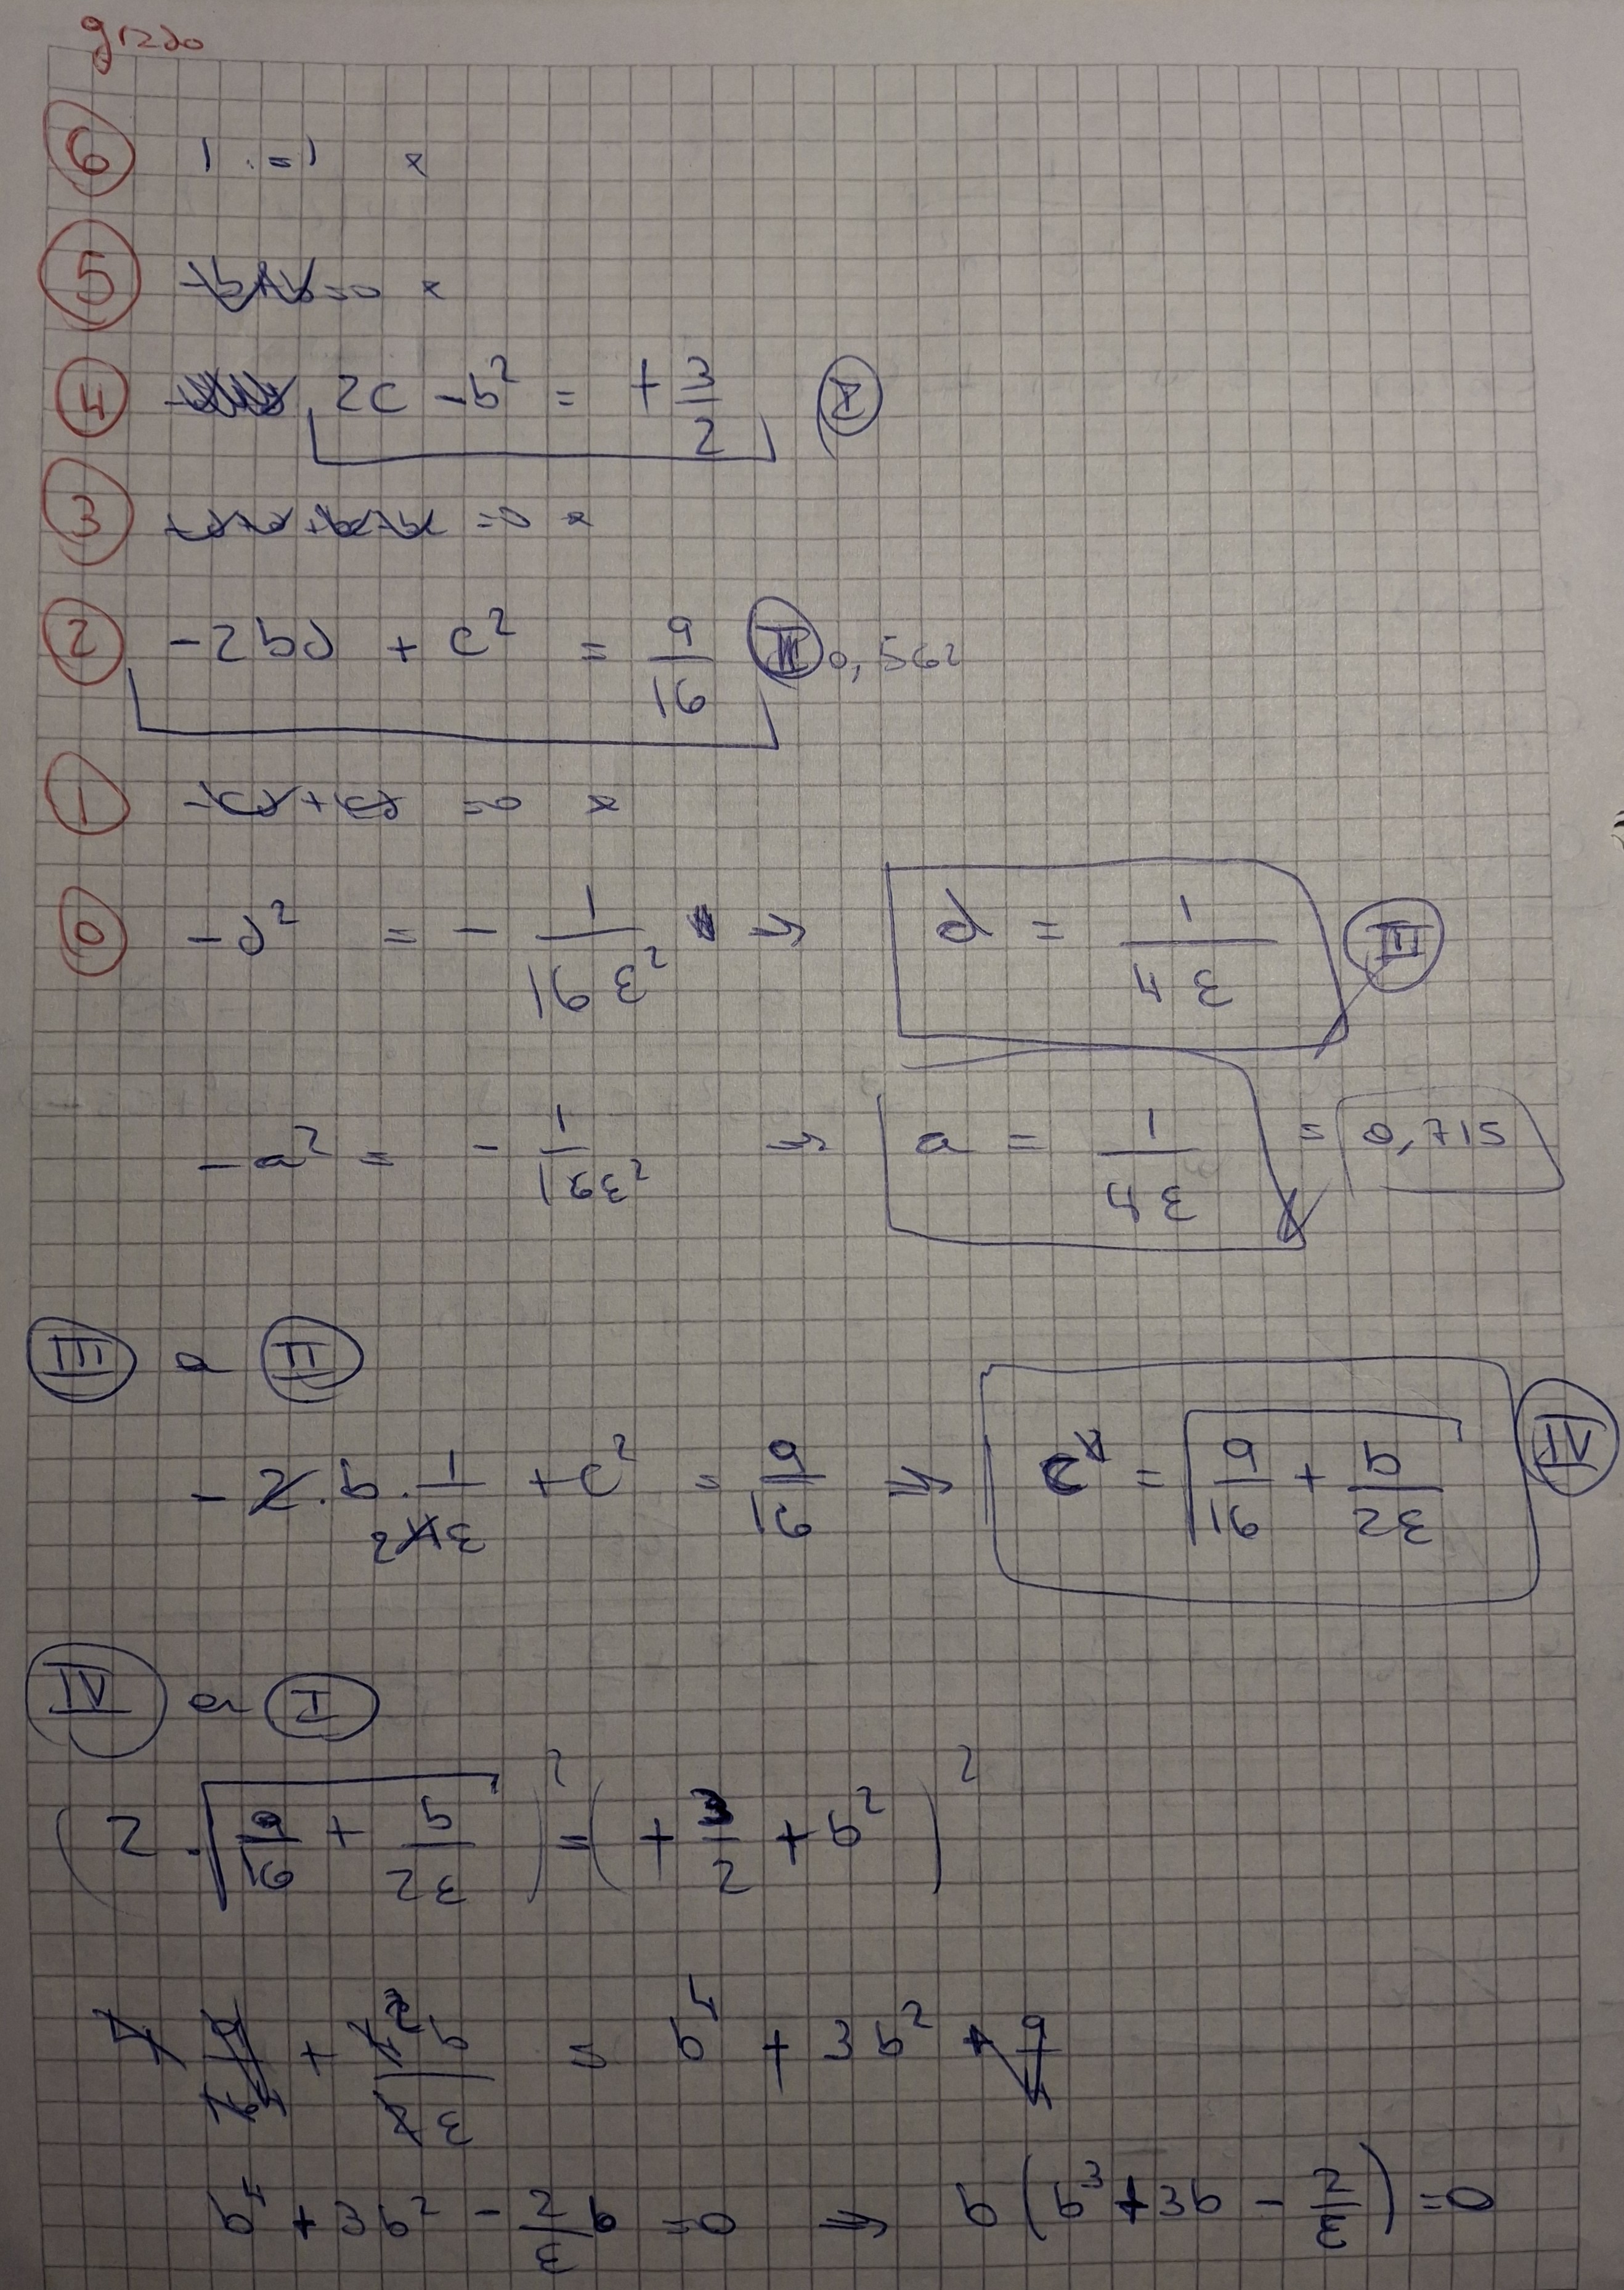 grado
6 1 = 1 x
5 -b+b=0 x
4 2c - b² = + 3/2 I
3 =0 x
2 -2bd + c² = 9/16 II 0,562
1 -cd+cd =0 x
0 -d² = - 1/(16 ε²) → d = 1/(4 ε) III
-a² = - 1/(16ε²) → a = 1/(4ε) = 0,715
III a II
-2·b·1/(4ε) + c² = 9/16 ⇒ c = √(9/16 + b/(2ε)) IV
IV a I
(2·√(9/16 + b/(2ε)))² = (+ 3/2 + b²)²
4 9/16 + 4b/(2ε) = b⁴ + 3b² + 9/4
b⁴ + 3b² - 2/ε b = 0 ⇒ b(b³ + 3b - 2/ε) = 0